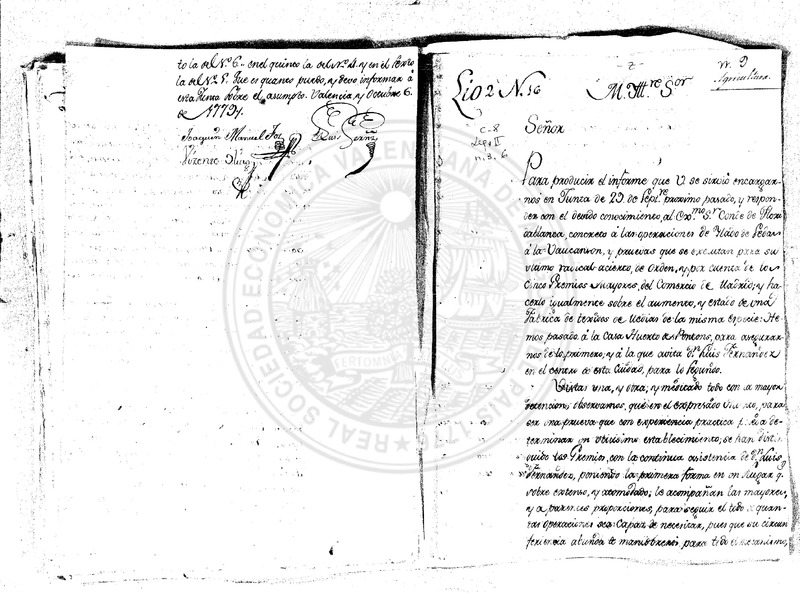 to la del N.º 6. en el quinto la del N.º 4. y en el sexto
la del N.º 5. Que es quanto puedo, y devo informar á
esta Junta sobre el asumpto. Valencia, y Octubre 6.
de 1779.
Joaquin Manuel Fos
Luis Fernz
Vicente
n. 9
Agricultura
Lio 2º N. 16
M. Ill.re S.or
C-8
Leg. II
n. 3. 6
Señor
Para producir el informe que V. se sirvió encargar-
nos en Junta de 29. de Sept.re proximo pasado, y respon-
der con el devido conocimiento, al Exc.mo S.r Conde de Flori-
dablanca, concreto á las operaciones de Hilado de Sedas
á la Vaucanson, y pruevas que se executan para su
ultimo radical acierto, de orden, y por cuenta de los
Cinco Gremios mayores, del Comercio de Madrid; y ha-
cerlo igualmente sobre el aumento, y estado de una
Fabrica de texidos de Medias de la misma especie: He-
mos pasado á la Casa Huerto de para asegurar-
nos de lo primero; y á la que avita D.n Luis Fernandez
en el centro de esta Ciudad, para lo segundo.
Vistas una, y otra; y meditado todo con la mayor
detencion; observamos, que en el expresado para
ser una prueva que con experiencia practica de-
terminar un utilisimo establecimiento; se han
los Gremios, con la continua asistencia de D.n Luis
Fernandez, poniendo la primera forma en un Lugar
sobre extenso, y acomodado; le acompañan las mayores,
y proporciones, para seguir el todo quan-
tas operaciones sea capaz de necesitar, pues que su circun-
ferencia abunda de para todo el mecanismo,
REAL SOCIEDAD ECONOMICA VALENCIANA DE AMIGOS DEL PAIS 1776